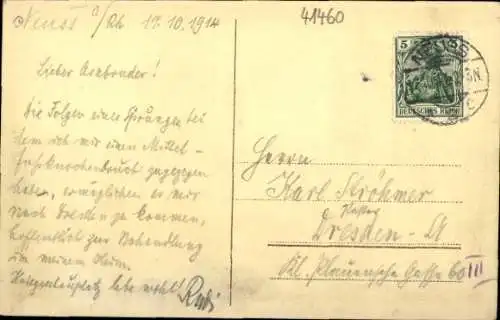 Neuss a/Rh 17.10.1914
41460
Lieber
Die Folgen eines
dem ich mir einen Mittel-
fußknochenbruch zugezogen
habe, ermöglichen es mir
nach Dresden zu kommen,
hoffentlich zur Behandlung
in meinem Heim.
lebe wohl! Rudi
5
DEUTSCHES REICH
NEUSS
Herrn
Karl Ströhmer
Dresden - A
Kl. Plauensche Gasse 60 III